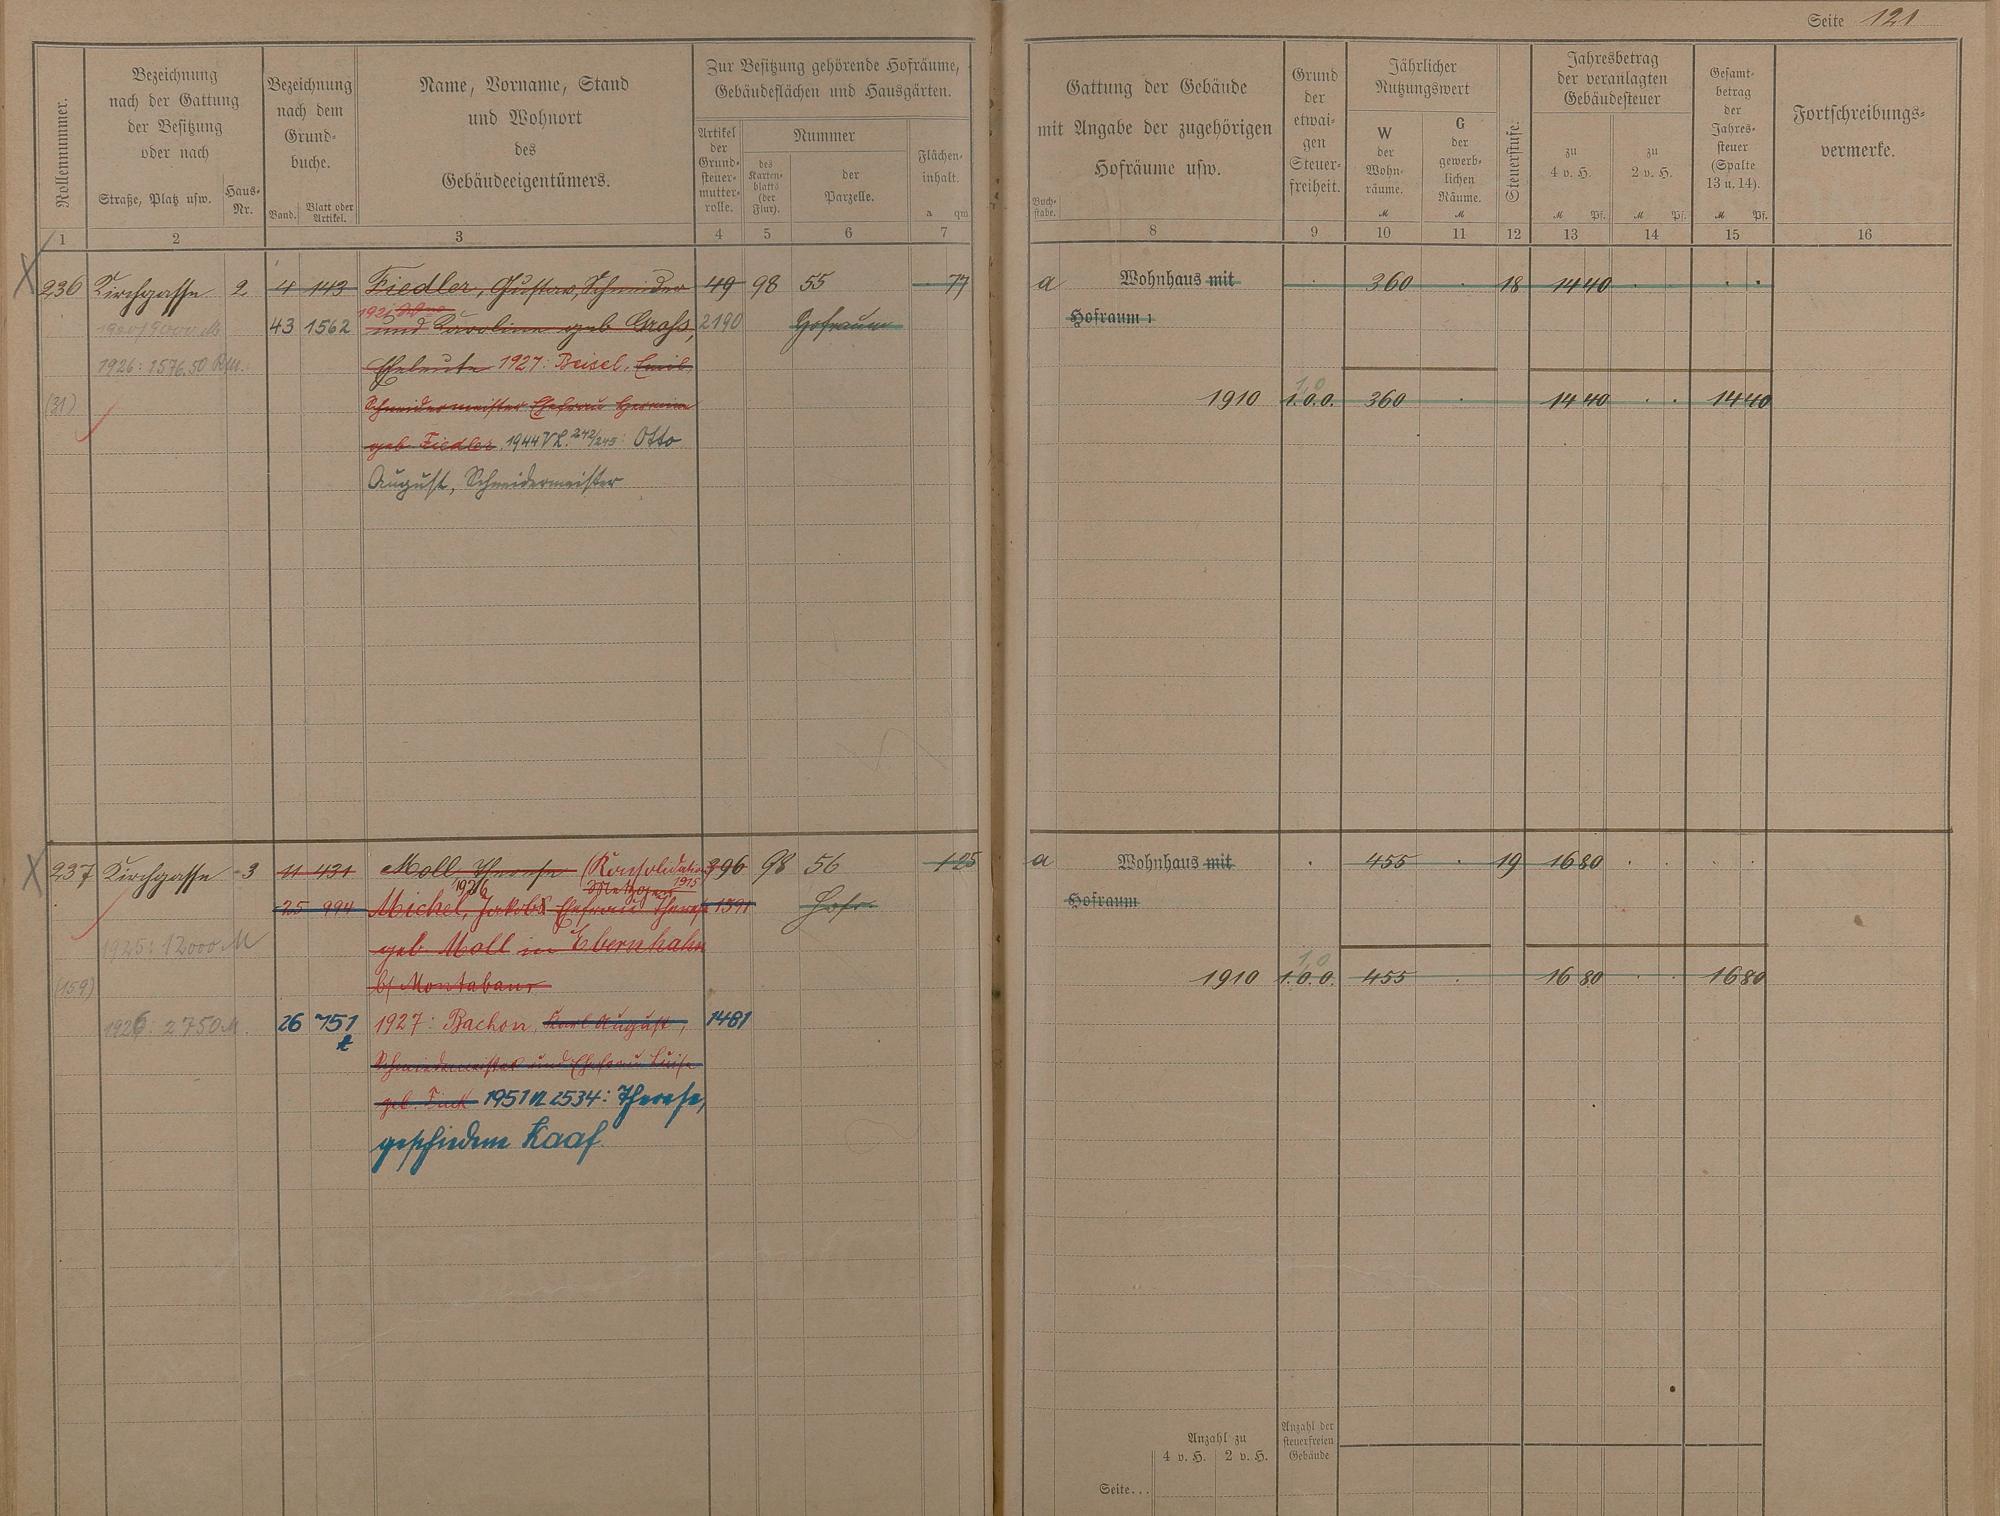 Seite 121
Rollennummer.
Bezeichnung
nach der Gattung
der Besitzung
oder nach
Straße, Platz usw.
Haus-
Nr.
Bezeichnung
nach dem
Grund-
buche.
Band.
Blatt oder
Artikel.
Name, Vorname, Stand
und Wohnort
des
Gebäudeeigentümers.
Zur Besitzung gehörende Hofräume,
Gebäudeflächen und Hausgärten.
Artikel
der
Grund-
steuer-
mutter-
rolle.
Nummer
des
Karten-
blatts
(der
Flur).
der
Parzelle.
Flächen-
inhalt.
a qm
Gattung der Gebäude
mit Angabe der zugehörigen
Hofräume usw.
Buch-
stabe.
Grund
der
etwai-
gen
Steuer-
freiheit.
Jährlicher
Nutzungswert
W
der
Wohn-
räume.
M
G
der
gewerb-
lichen
Räume.
M
Steuerstufe.
Jahresbetrag
der veranlagten
Gebäudesteuer
zu
4 v. H.
M Pf.
zu
2 v. H.
M Pf.
Gesamt-
betrag
der
Jahres-
steuer
(Spalte
13 u. 14).
M Pf.
Fortschreibungs-
vermerke.
1 2 3 4 5 6 7 8 9 10 11 12 13 14 15 16
236 Kirchgasse 2 4 143 Fiedler, Gustav, Schneider 49 98 55 77 a Wohnhaus mit 360 18 14 40
43 1562 und Karoline geb Groß, 2190 Hofraum Hofraum
1926: 1576.50 Rm. Eheleute 1927: Beisel, Emil,
(31) Schneidermeister Ehefrau Hermine 1910 1.0.0. 360 14 40 14 40
geb. Fiedler. 1944 VL. 242/245: Otto
August, Schneidermeister
237 Kirchgasse 3 11 431 Moll, Therese (Konsolidation 396 98 56 1 25 a Wohnhaus mit 455 19 16 80
1926 Metzger 1915
25 994 Michel, Jakob Ehefrau Therese 1391 Hofr. Hofraum
1925: 12000 M geb Moll in Ebernhahn
(159) b/ Montabaur 1910 1.0.0. 455 16 80 16 80
1926: 2750 M. 26 751 1927: Bachon, Karl August, 1481
Schmiedemeister und Ehefrau Luise
geb. 1951 N 2534: Therese,
geschiedene Kaaf
Anzahl zu
4 v. H. 2 v. H.
Anzahl der
steuerfreien
Gebäude
Seite...